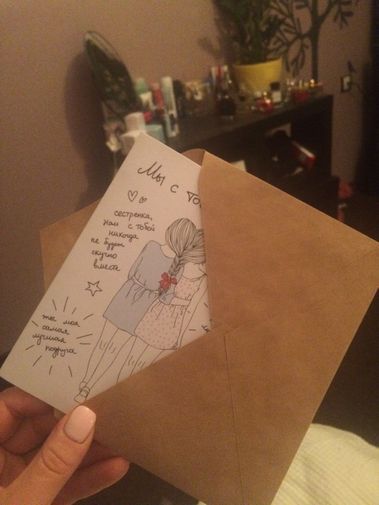 Мы с то
сестренка,
нам с тобой
никогда
не будет
скучно
вместе
ты моя
самая
лучшая
подруга